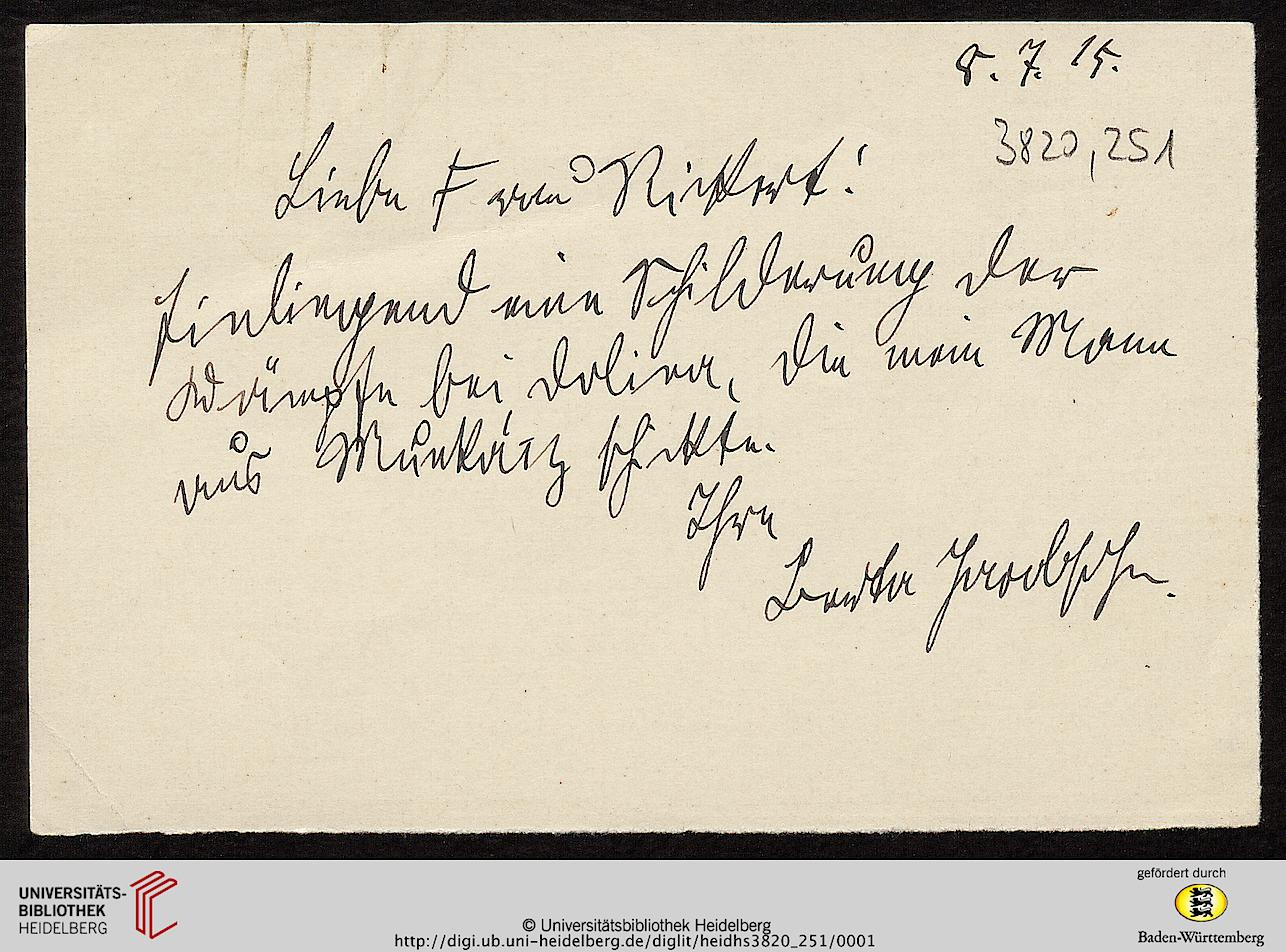 8. 7. 15.
3820,251
Liebe Frau Rickert!
Einliegend eine Schilderung der
Kämpfe bei Dolina, die mein Mann
aus Munkácz schickte.
Ihre
Berta Jacobsohn.
UNIVERSITÄTS-
BIBLIOTHEK
HEIDELBERG
© Universitätsbibliothek Heidelberg
http://digi.ub.uni-heidelberg.de/diglit/heidhs3820_251/0001
gefördert durch
Baden-Württemberg